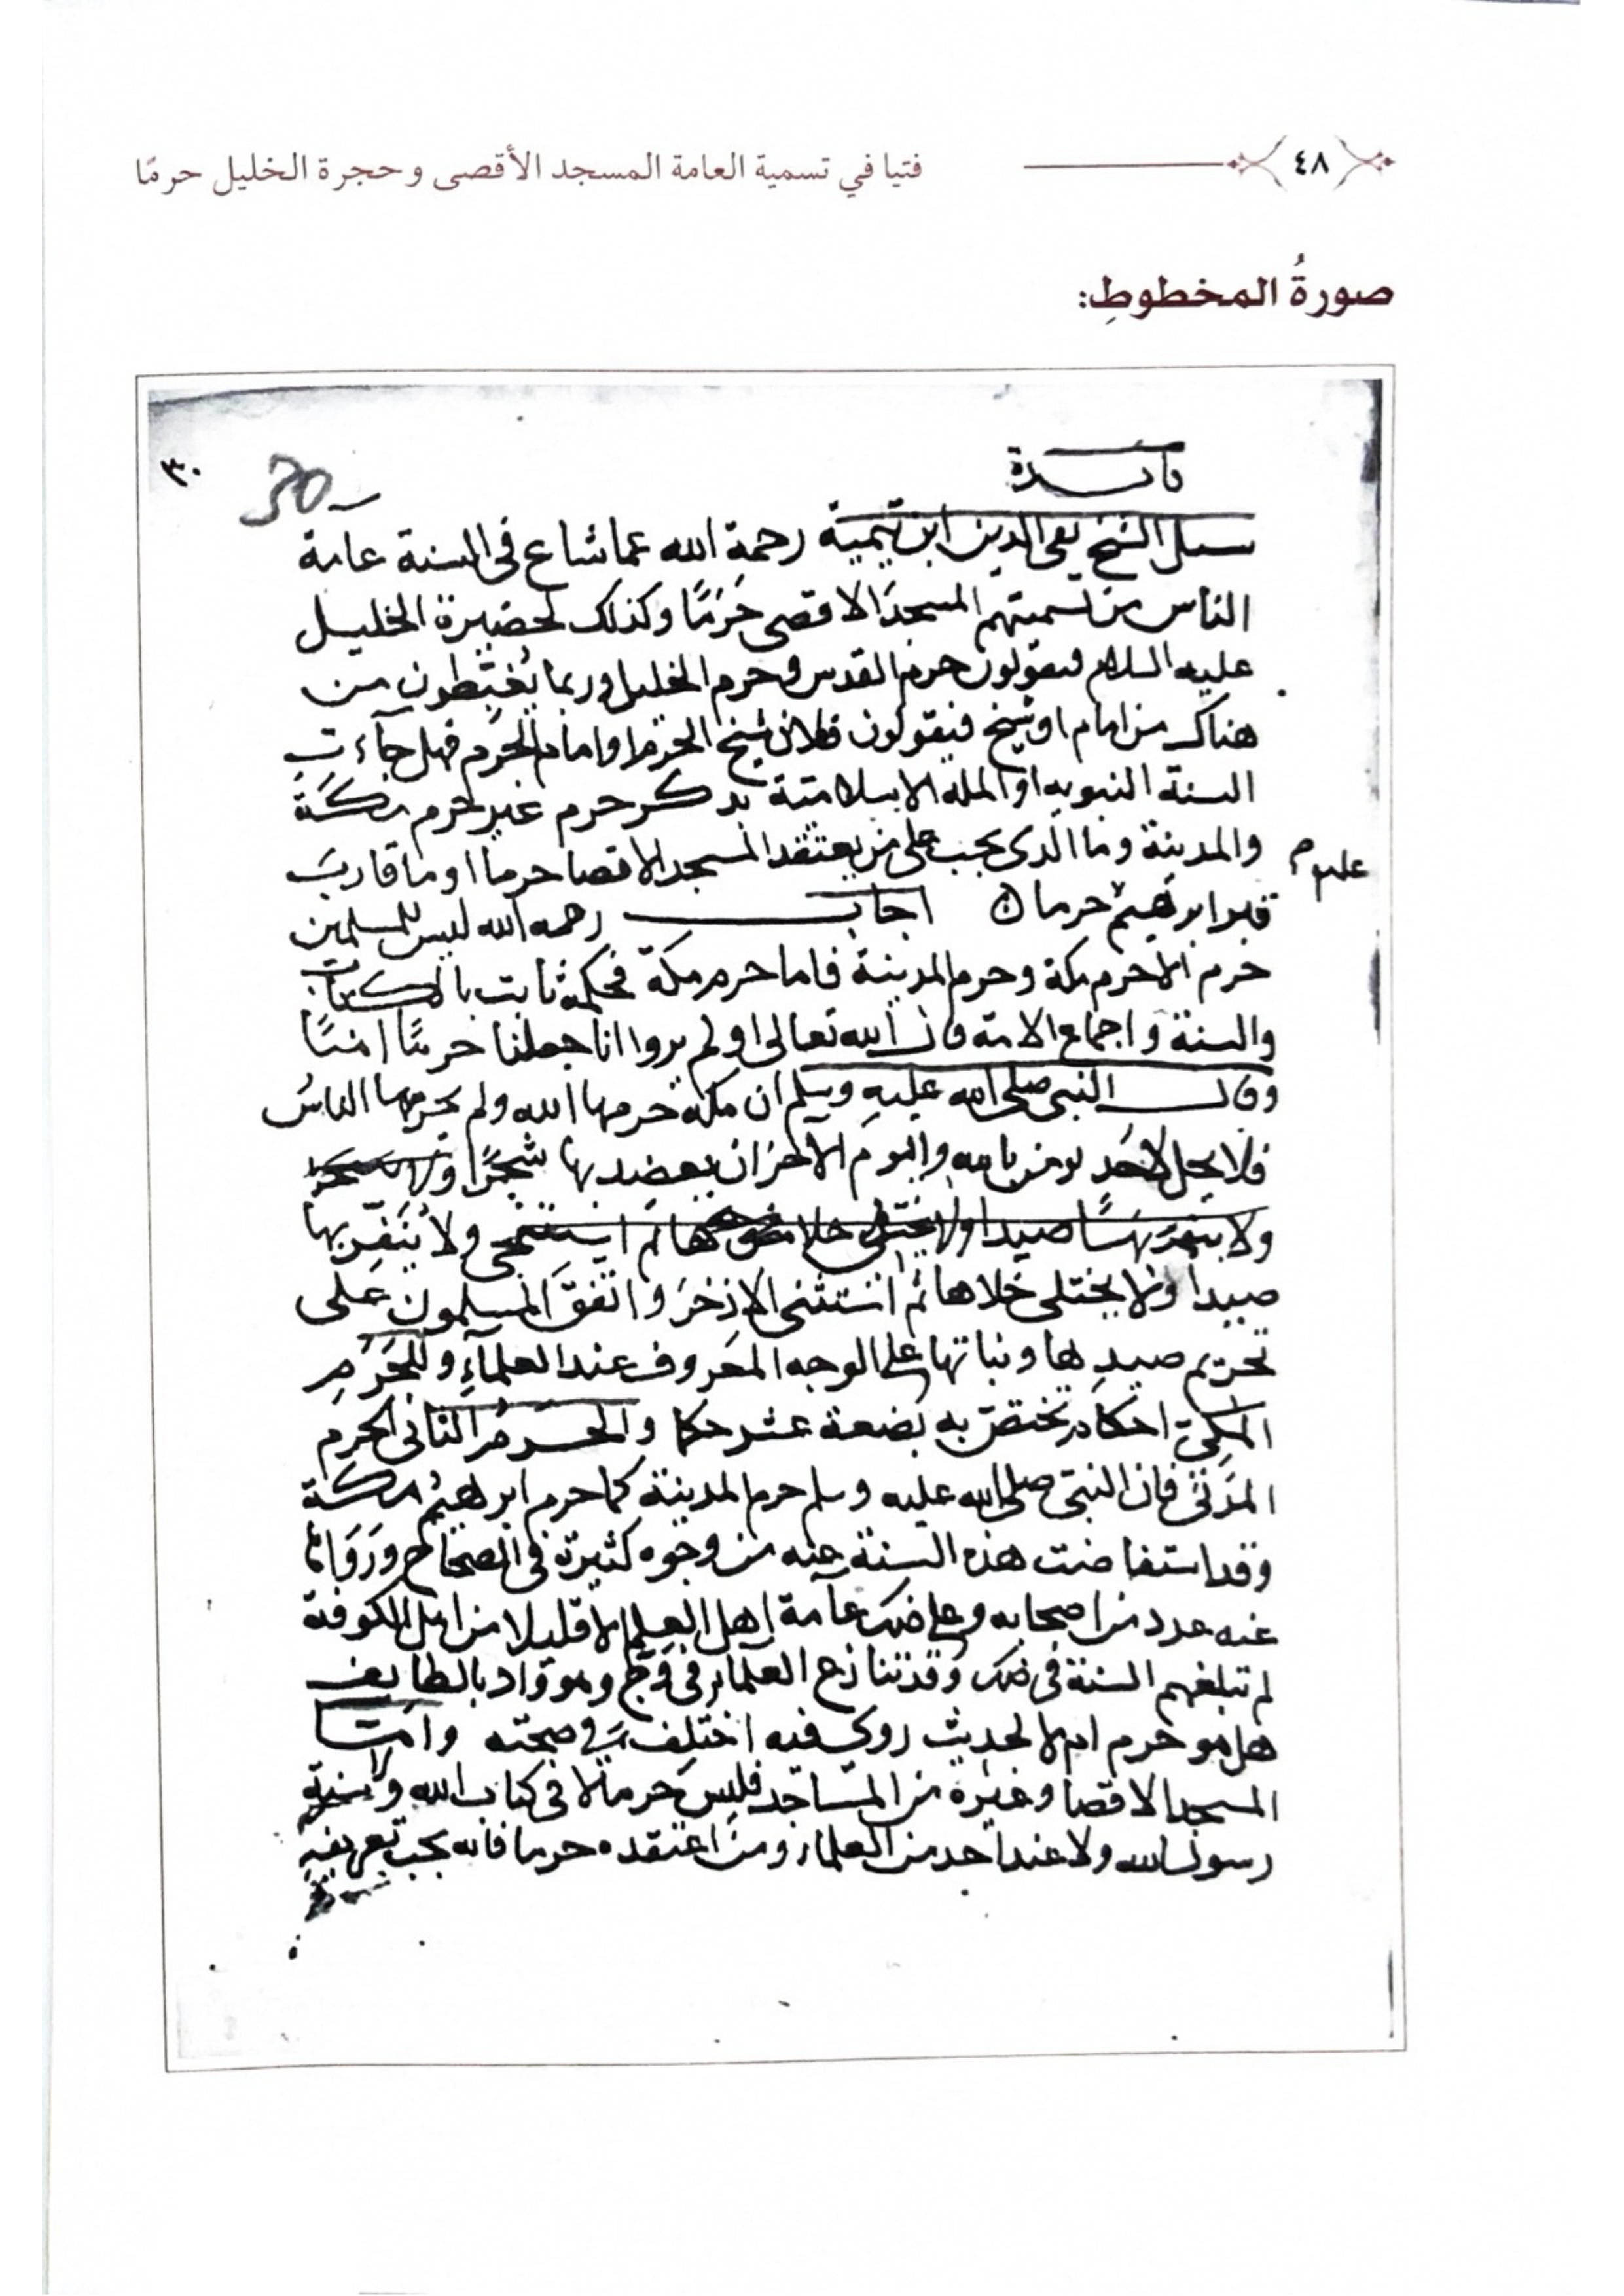 ٤٨
فتيا في تسمية العامة المسجد الأقصى وحجرة الخليل حرمًا
صورةُ المخطوطِ:
٣٠
30
فائدة
سئل الشيخ تقي الدين ابن تيمية رحمة الله عما شاع في السنة عامة
الناس من تسميتهم المسجد الاقصى حَرَمًا وكذلك لحضيرة الخليل
عليه السلام فيقولون حرم القدس وحرم الخليل وربما يُغبِّطون من
هناك من امام او شيخ فيقولون فلان شيخ الحرم او امام الحرم فهل جآءت
السنة النبويه او المله الاسلامية بذكر حرم غير حرم مكة
والمدينة وما الذى يجب على من يعتقد المسجد الاقصا حرما او ما قارب
قبر ابرهيم حرما اجاب رحمه الله ليس للمسلمين
حرم الا حرم مكة وحرم المدينة فاما حرم مكة فحكمه ثابت بالكتاب
والسنة واجماع الامة قال الله تعالى اولم يروا انا جعلنا حرمًا امنًا
وقال النبى صلى الله عليه وسلم ان مكة حرمها الله ولم يحرمها الناسُ
فلا يحل لاحَد يومن بالله واليوم الاخر ان يعضد بها شجرًا
ولا ولا يُنَفّر بها
صيدا ولا يختلى خلاها ثم استثنى الاذخرَ واتفقَ المسلمون على
تحريم صيدها ونباتها على الوجه المعروف عند العلمآءِ وللحَرَمِ
المكىّ احكام تختصّ به بضعة عشر حكما والحرمُ الثانى الحرم
المدَنىّ فان النبىّ صلى الله عليه وسلم حرم المدينة كما حرم ابرهيمُ مكة
وقد استفاضت هذه السنة عنه من وجوه كثيرة فى الصحاح ورَوَاها
عنه عدد من اصحابه وعلى ذلك عامة اهل العلم الا قليلا من اهل الكوفة
لم تبلغهم السنة فى ذلك وقد تنازع العلماء فى وَجّ وهو واد بالطايف
هل هو حرم ام لا لحديث روى فيه اختلف فى صحته وامّا
المسجد الاقصا وغيره من المساجد فليسَ حرما لا فى كتاب الله ولا سنة
رسول الله ولا عند احد من العلماء ومن اعتقده حرما فانه يجب تعريفه